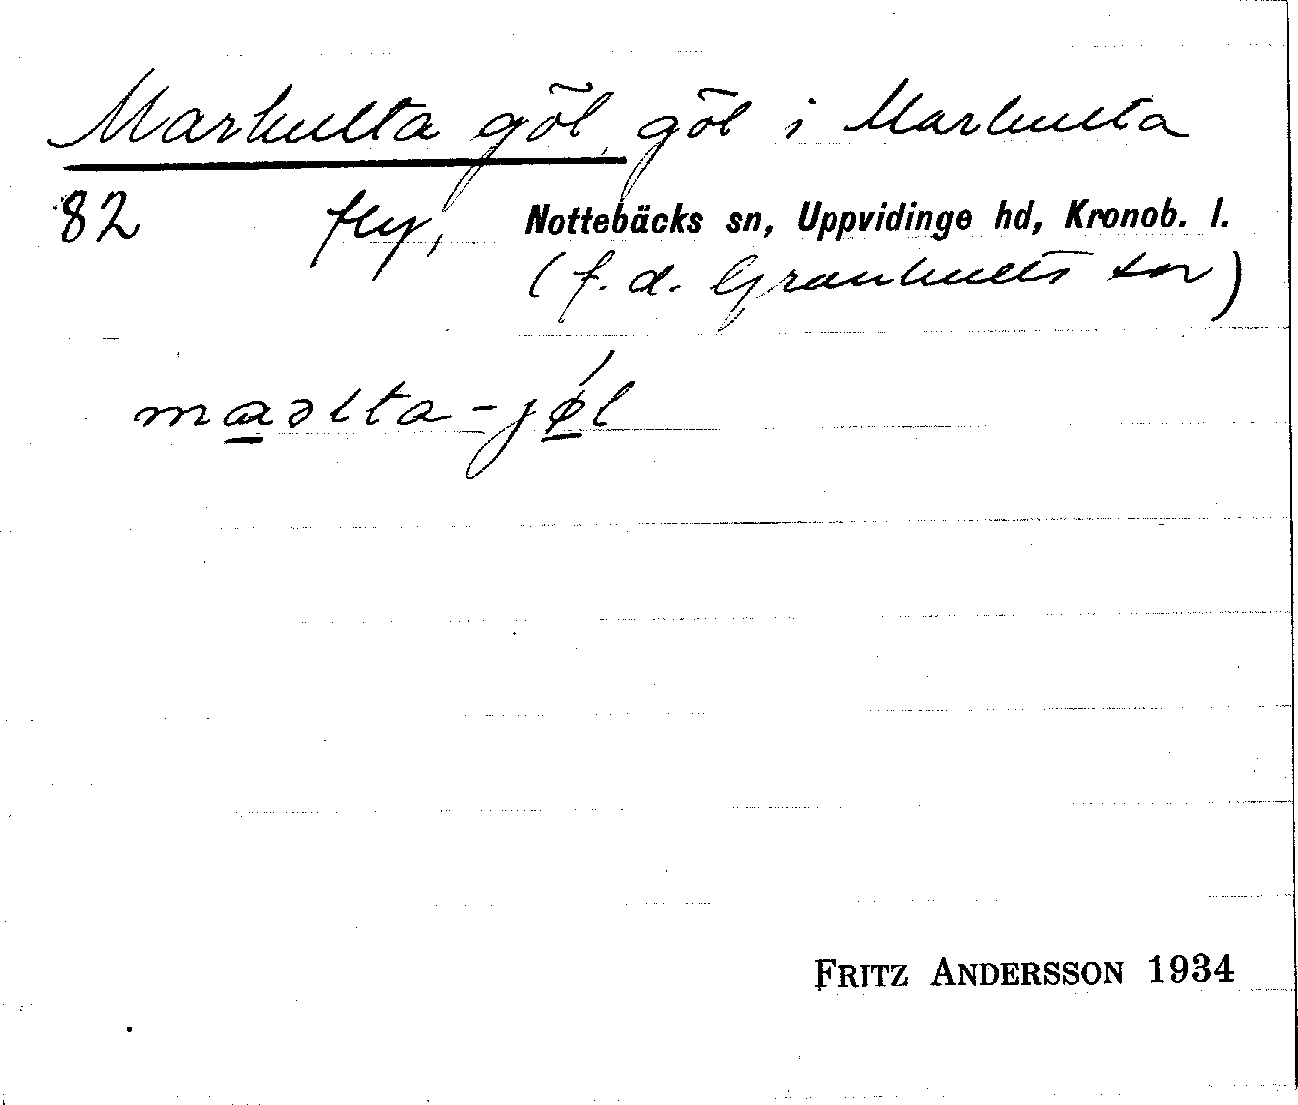 Marhulta göl, göl i Marhulta
82 fly, Nottebäcks sn, Uppvidinge hd, Kronob. l.
(f. d. Granhults sn)
maəlta-jǿl
FRITZ ANDERSSON 1934